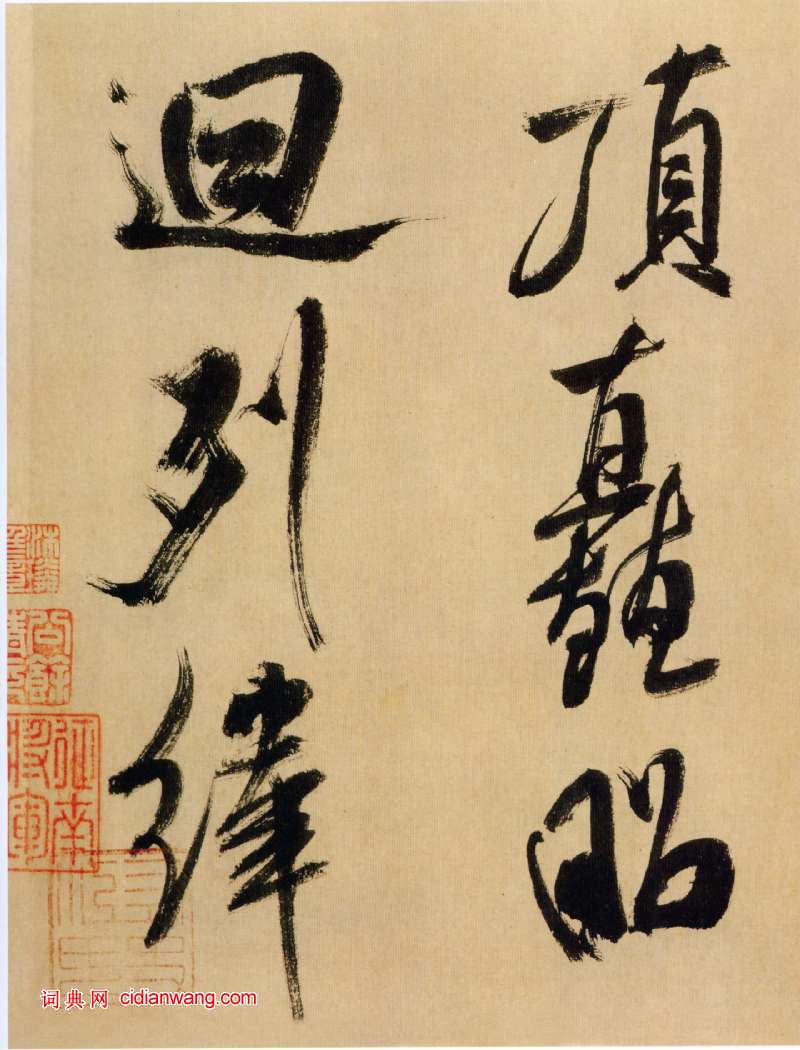 頂矗昭
迴列緯
词典网 cidianwang.com